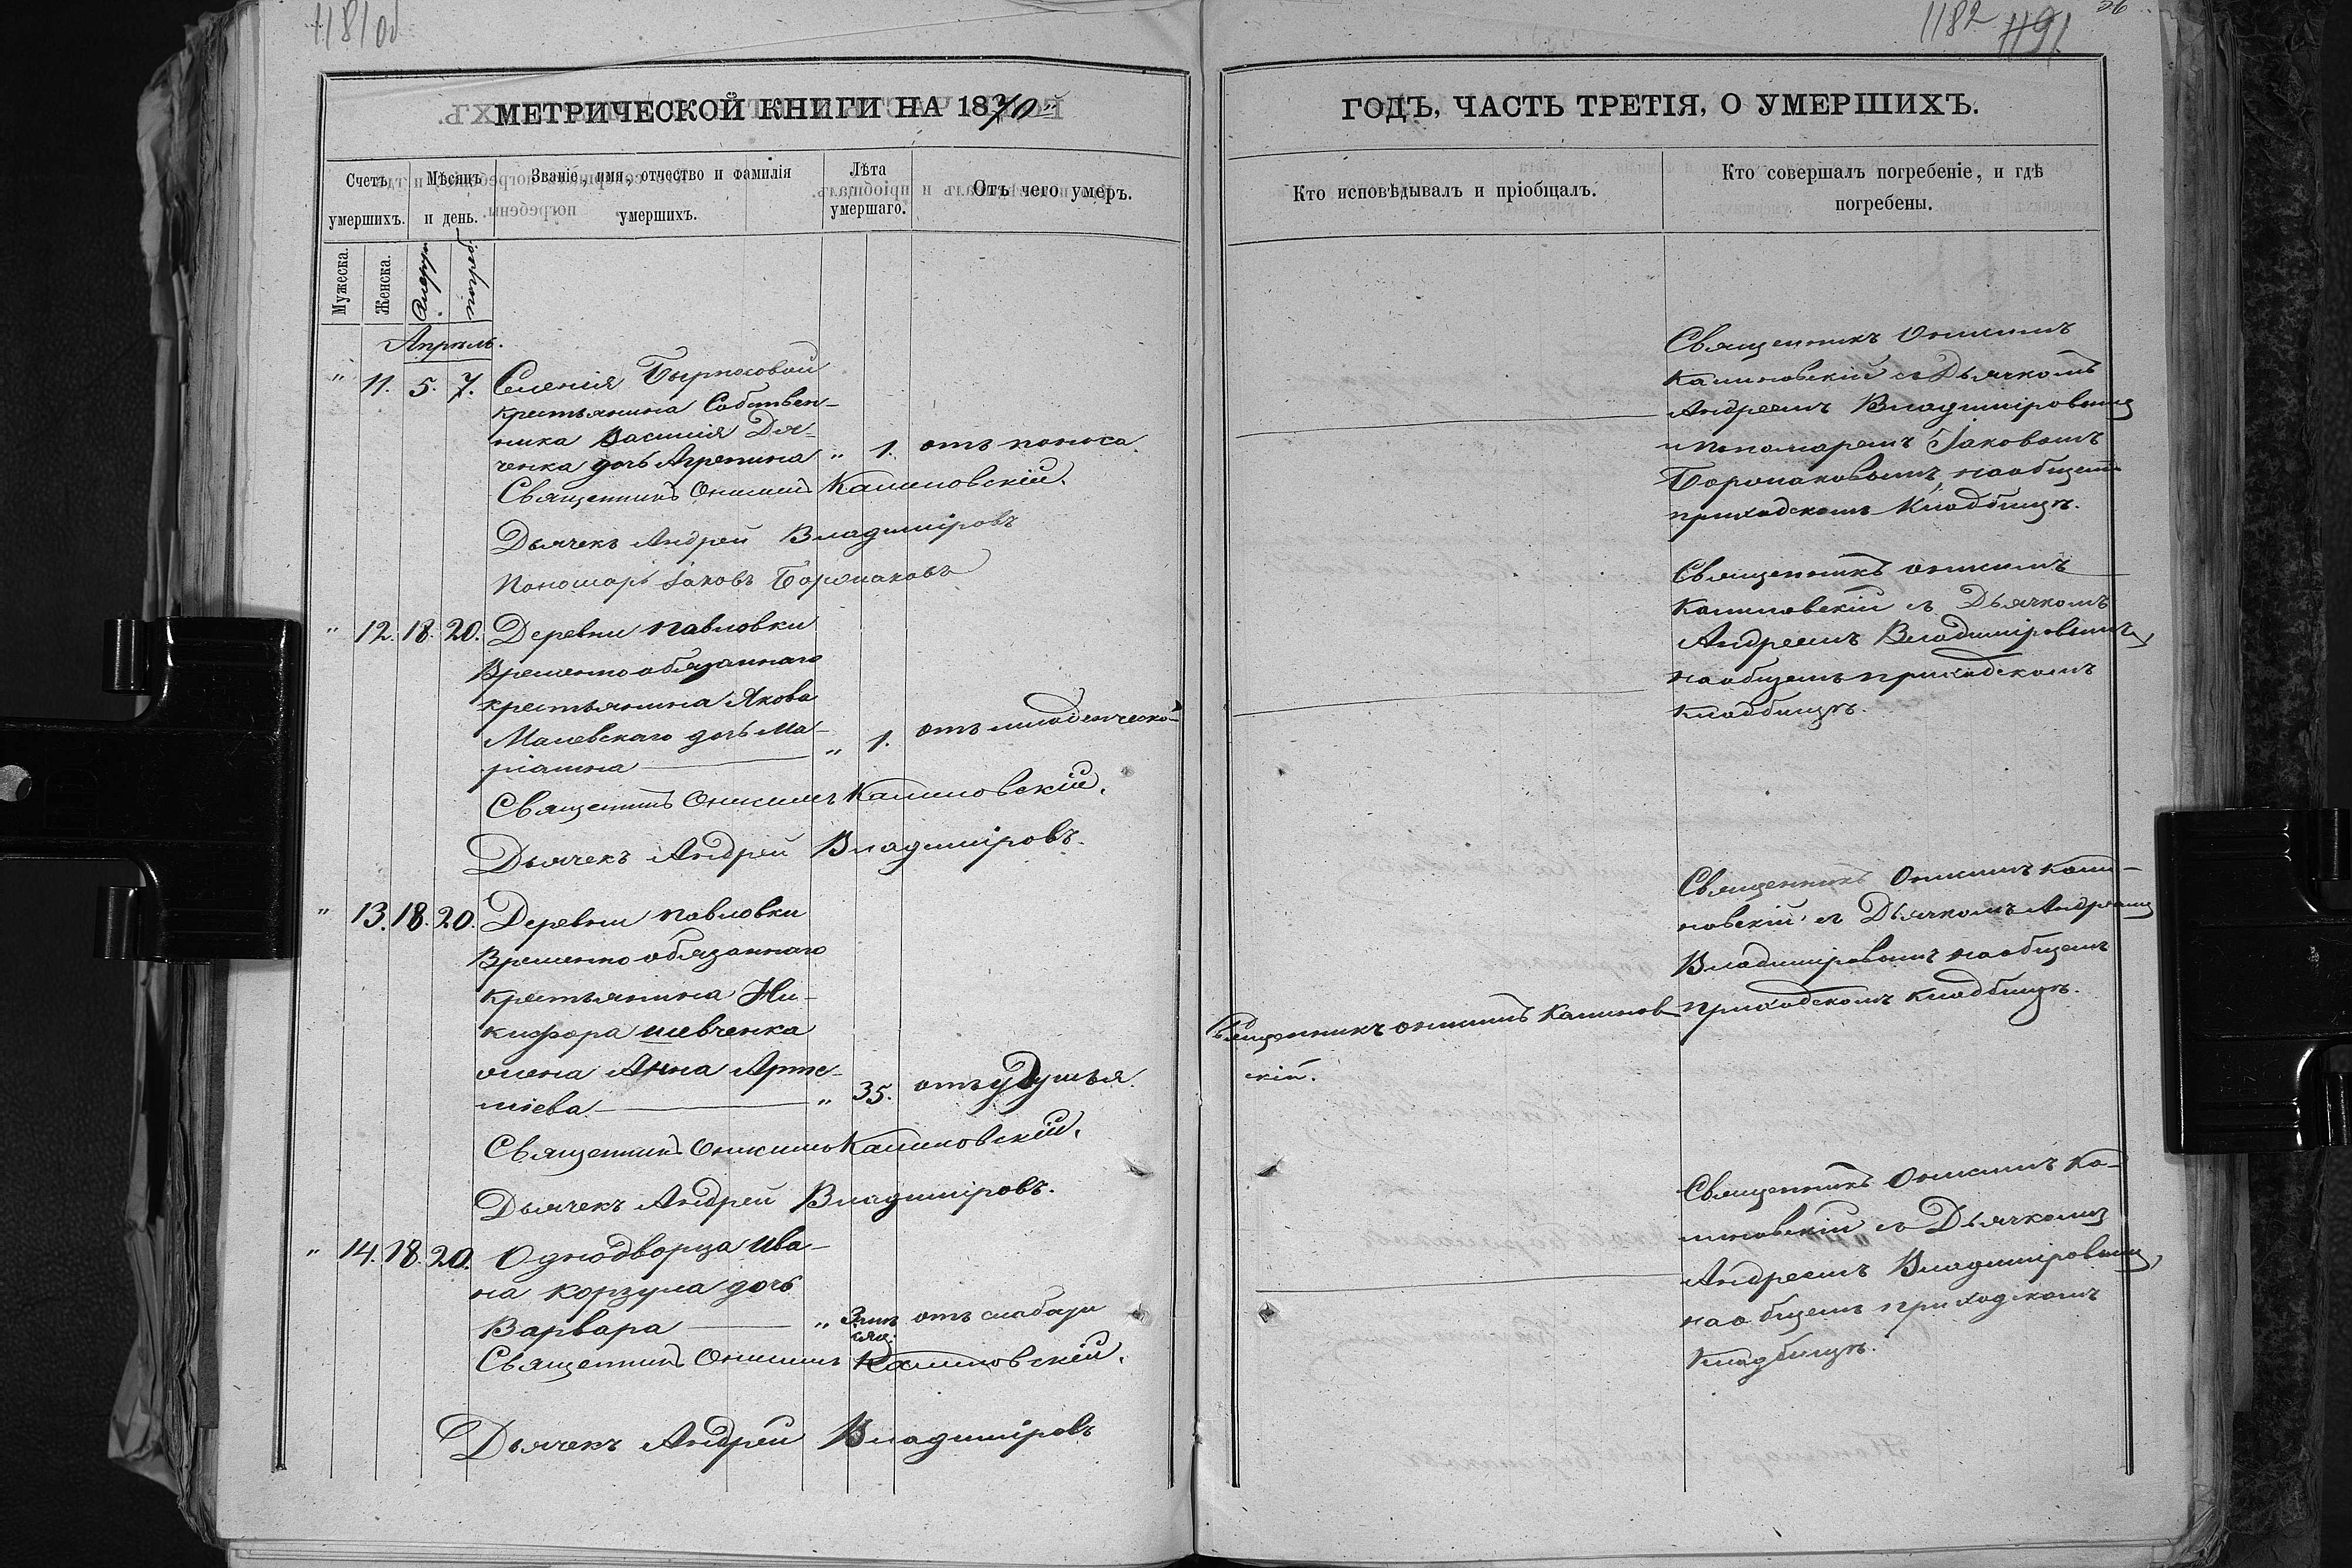 1181об
МЕТРИЧЕСКОЙ КНИГИ НА 1870
Счетъ умершихъ.
Мѣсяцъ и день.
Званіе, имя, отчество и фамилія умершихъ.
Лѣта умершаго.
Отъ чего умеръ.
Мужеска.
Женска.
погреб.
Апрѣль.
" 11. 5. 7. Селенія
крестьянина Собствен-
ника Василія Дя-
ченка дочь Агрепина " 1. отъ поноса
Священникъ Онисимъ Калиновскій.
Дьячекъ Андрей Владиміровъ
Пономарь Іаковъ
" 12. 18. 20. Деревни Павловки
Временно обязаннаго
крестьянина Якова
Малевскаго дочь Ма-
ріанна " 1. отъ младенческо-
Священникъ Онисимъ Калиновскій.
Дьячекъ Андрей Владиміровъ.
" 13. 18. 20. Деревни Павловки
Временно обязаннаго
крестьянина Ни-
кифора Шевченка
жена Анна Арте-
міева " 35. отъ удушья.
Священникъ Онисимъ Калиновскій.
Дьячекъ Андрей Владиміровъ.
" 14. 18. 20. Однодворца Ива-
на Корзула дочь
Варвара " отъ слабости
Священникъ Онисимъ Калиновскій.
Дьячекъ Андрей Владиміровъ
1182 1191
36
ГОДЪ, ЧАСТЬ ТРЕТІЯ, О УМЕРШИХЪ.
Кто исповѣдывалъ и пріобщалъ.
Кто совершалъ погребеніе, и гдѣ
погребены.
Священникъ Онисимъ
Калиновскій съ Дьячкомъ
Андреемъ Владиміровымъ
и Пономаремъ Іаковомъ
на общемъ
приходскомъ Кладбищѣ.
Священникъ Онисимъ
Калиновскій съ Дьячкомъ
Андреемъ Владиміровымъ,
на общемъ приходскомъ
кладбищѣ.
Священникъ Онисимъ Кали-
новскій съ Дьячкомъ Андреемъ
Владиміровымъ на общемъ
приходскомъ кладбищѣ.
Священникъ Онисимъ Калинов-
скій.
Священникъ Онисимъ Ка-
линовскій съ Дьячкомъ
Андреемъ Владиміровымъ,
на общемъ приходскомъ
Кладбищѣ.